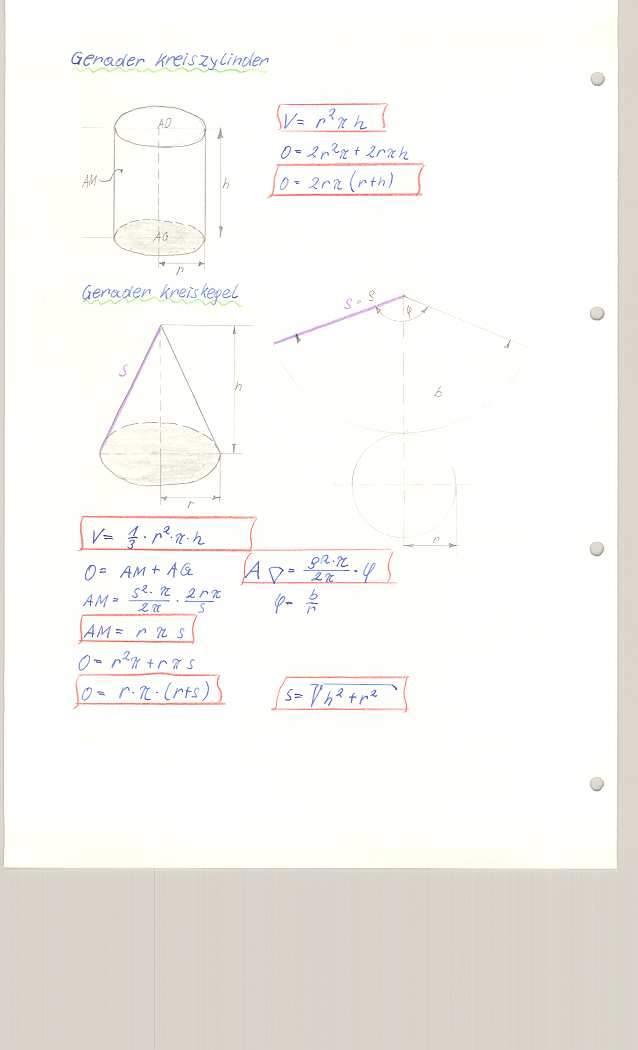 Gerader Kreiszylinder
AD
AM
h
AG
r
V= r²πh
O=2r²π+2rπh
O= 2rπ(r+h)
Gerader Kreiskegel
s
h
r
S = S
φ
b
r
V= 1/3 · r²·π·h
O= AM + AG
AM= s²·π/2π · 2rπ/s
AM= r π s
O= r²π+rπs
O= r·π·(r+s)
A ▽= s²·π/2π · φ
φ= b/r
s= √h²+r²